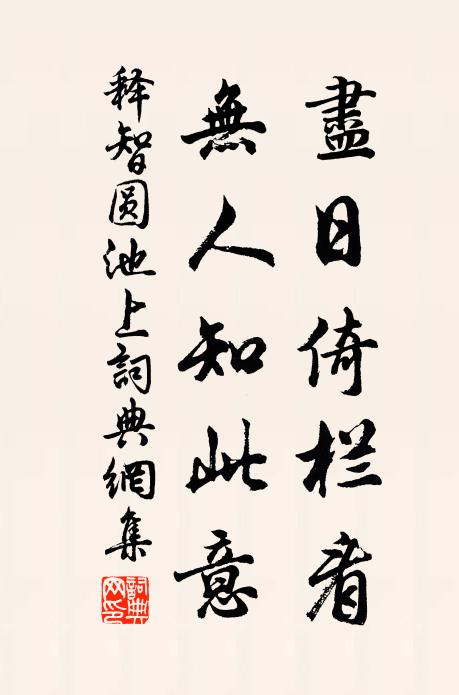 盡日倚栏看
無人知此意
释智圆池上詞典網集
詞典網印